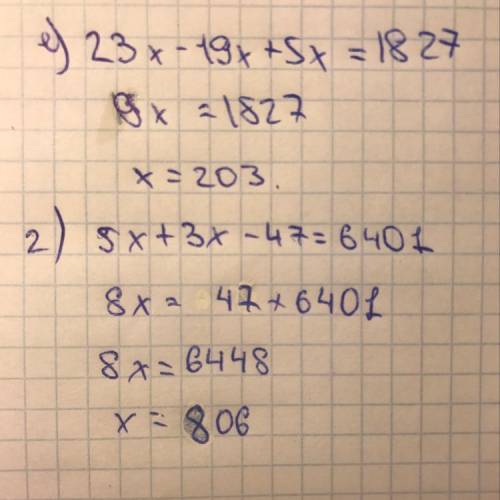 е) 23x - 19x + 5x = 1827
9x = 1827
x = 203.
2) 5x + 3x - 47 = 6401
8x = 47 + 6401
8x = 6448
x = 806